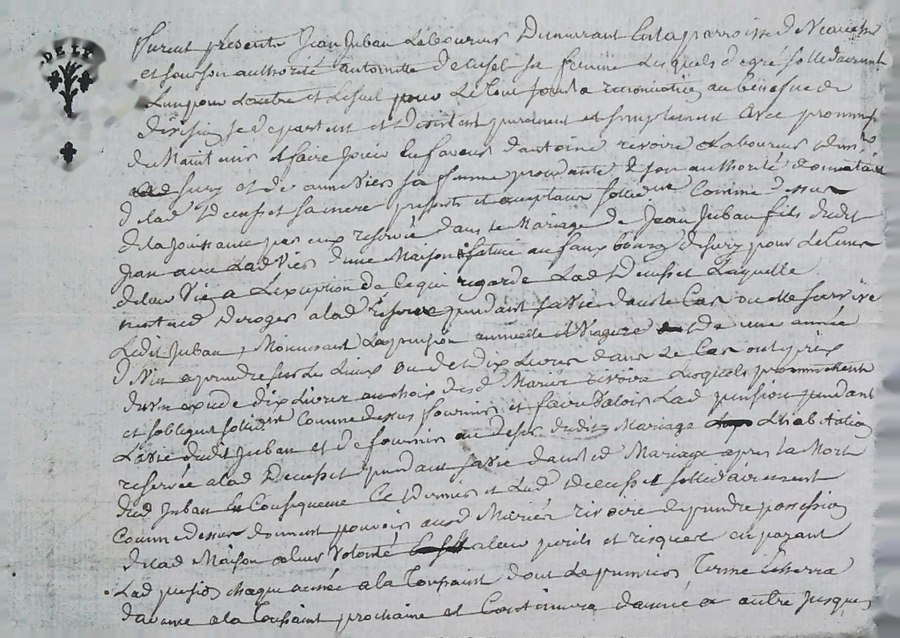 DE LE
furent présents Jean Juban Laboureur Demeurant En la parroisse de
et sous son authorité antoinette decuset sa femme Lesquels de gré sollidairement
Lun pour Lautre et Lesul pour Le tout sous la renonciation au bénéfice de
division se départent et Désistent purement et simplement avec promesse
de Maintenir et faire Jouir En faveur d'antoine revoire Laboureur
Sury et de anne Viers sa femme procédante de son authorité
de lad Decuset sa mere présents et acceptans sollidt Comme Dessus
de la Jouissance par eux reservée dans le Mariage de Jean Juban fils dudit
Jean avec Lad Viers d'une Maison situé au faux bourg de sury pour Le tems
de leur Vie a L'exception de Ce qui regarde Lad Decuset Laquelle
nentend Déroger a lad réserve pendant sa vie dans le Cas ou elle survive
Ledit Juban, Moyennant La pension annuelle et Viagere de une année
de Vin a prendre sur Le Lieux ou de dix Livres dans Le Cas ou
du vin ou de dix Livres au choix desd Mariés revoire Lesquels promettent
et sobligent sollidt Comme dessus fournir et faire Valoir Lad pension pendant
La vie dudit Juban et de fournir au desir dudit Mariage L'habitation
reservée a lad Decuset pendant sa vie dans led Mariage apres La Mort
dud Juban En Conséquence Ce Dernier et Lad Decuset sollidairement
Comme dessus donnent pouvoir aud Mariés revoire de prendre possession
de lad Maison a leur Volonté a leur perils et risques En payant
Lad pension chaque année a la Toussaint dont Le premier Terme Echerra
davance a la Toussaint prochaine et Continuera dannée a autre Jusques